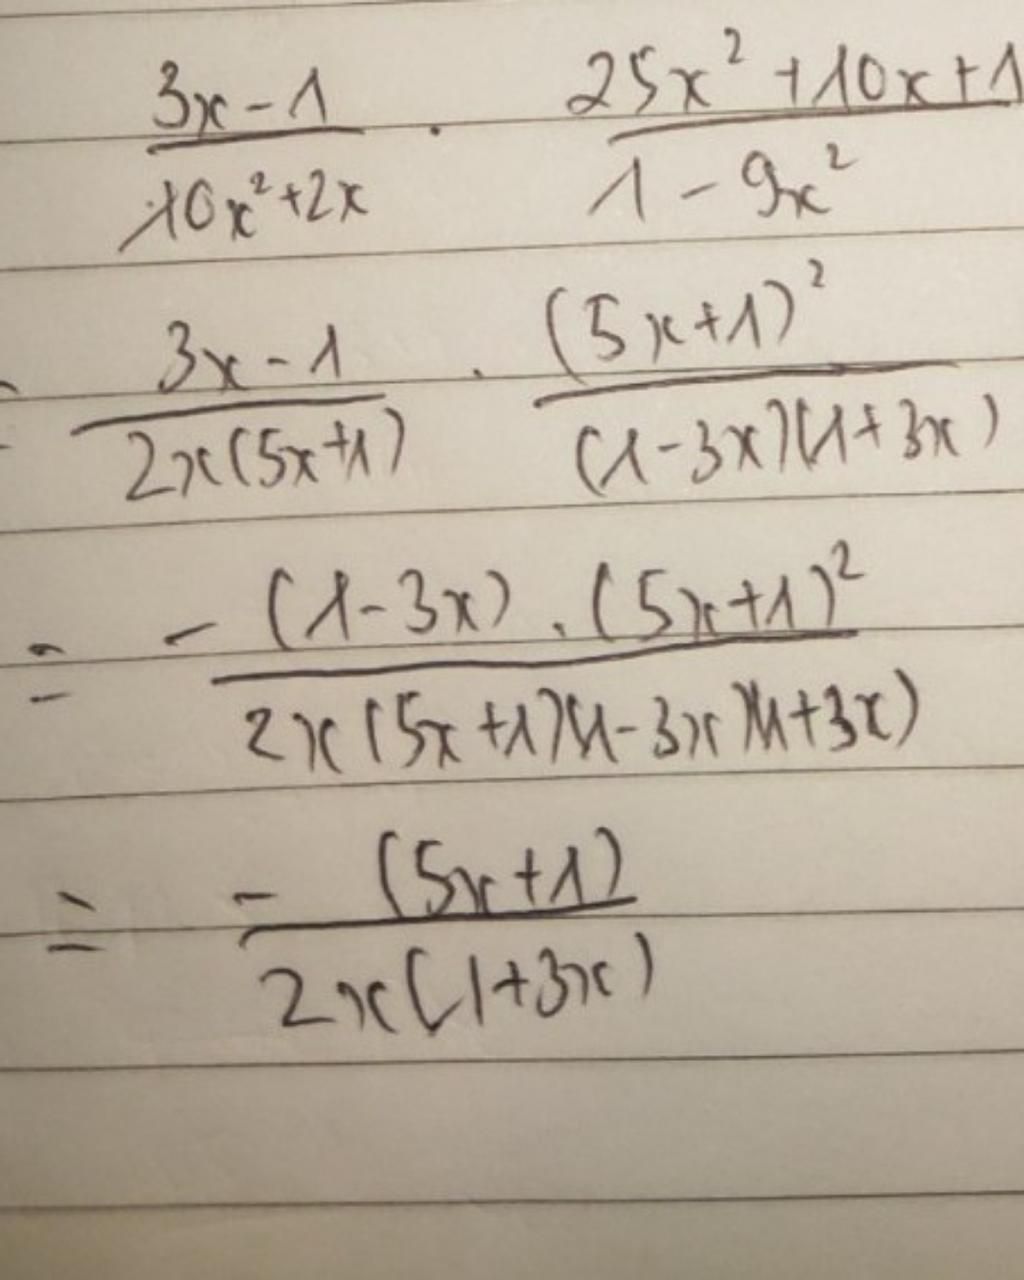 (3x - 1)/(10x² + 2x) · (25x² + 10x + 1)/(1 - 9x²)
= (3x - 1)/(2x(5x+1)) · (5x+1)²/((1-3x)(1+3x))
= -((1-3x).(5x+1)²)/(2x(5x+1)(1-3x)(1+3x))
= -(5x+1)/(2x(1+3x))